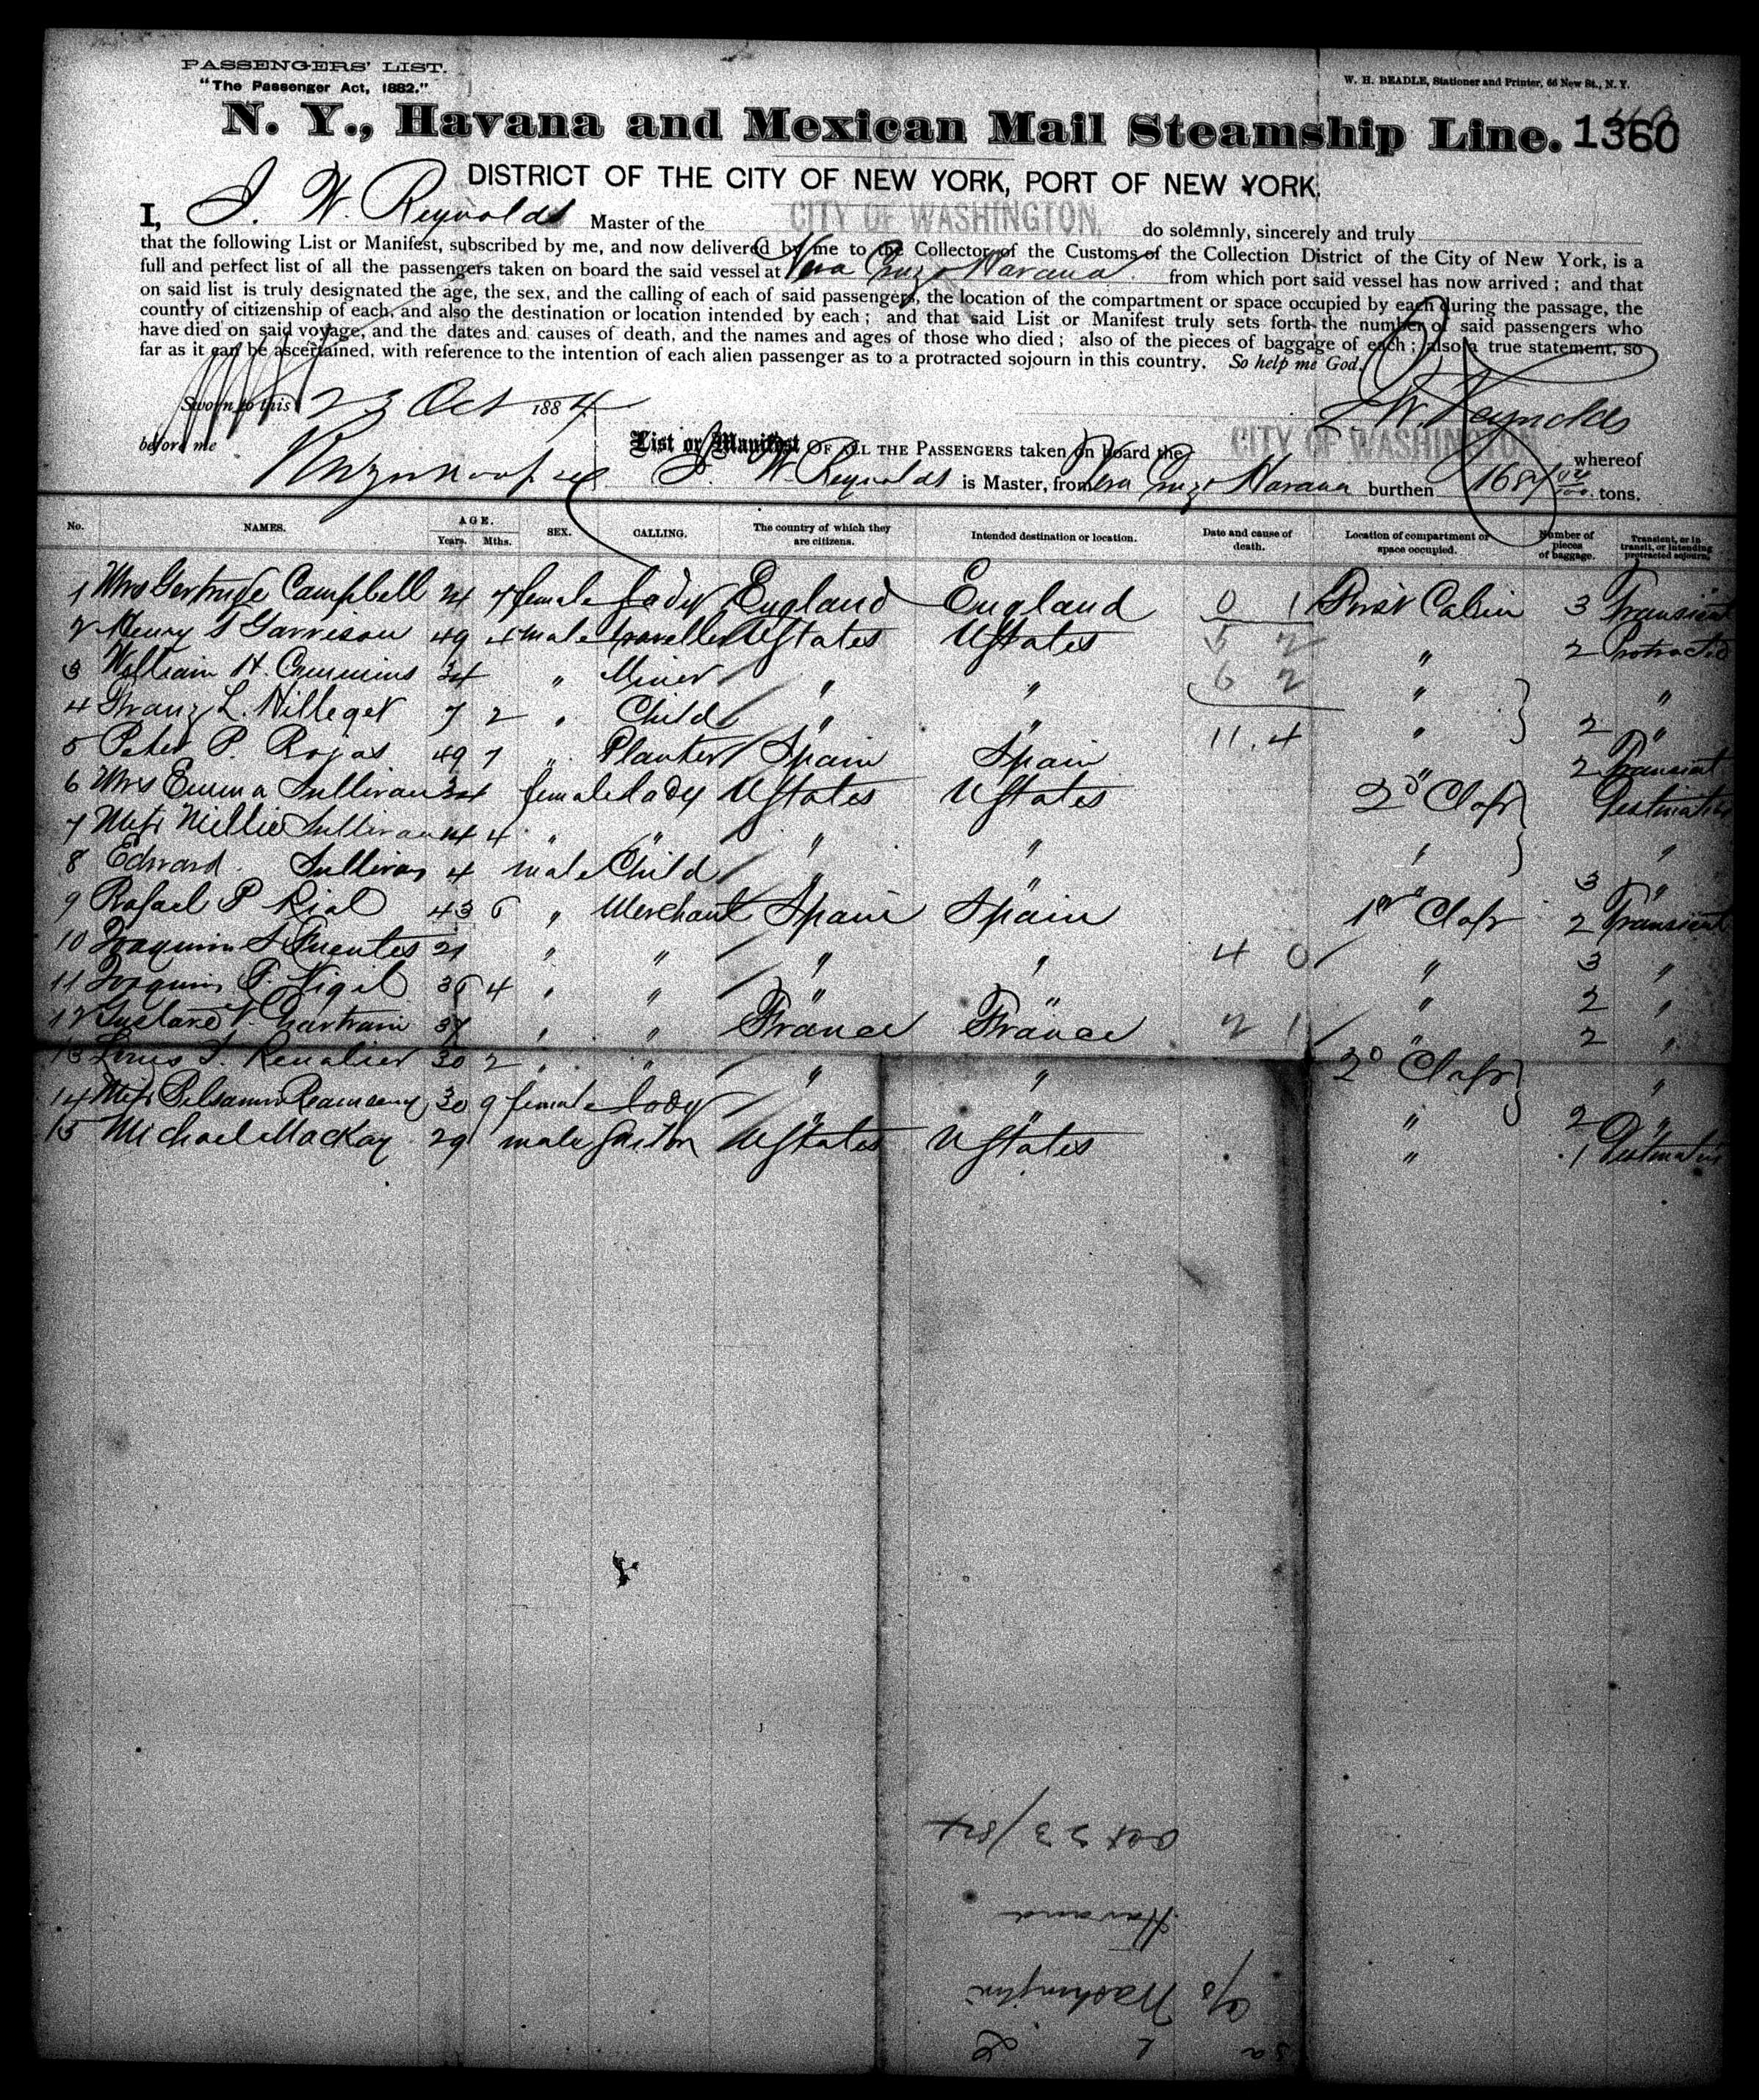 PASSENGERS' LIST.
"The Passenger Act, 1882."
W. H. BEADLE, Stationer and Printer, 66 New St., N. Y.
N. Y., Havana and Mexican Mail Steamship Line. 1360
DISTRICT OF THE CITY OF NEW YORK, PORT OF NEW YORK,
I, J. W. Reynolds Master of the CITY OF WASHINGTON. do solemnly, sincerely and truly
that the following List or Manifest, subscribed by me, and now delivered by me to the Collector of the Customs of the Collection District of the City of New York, is a
full and perfect list of all the passengers taken on board the said vessel at Vera Cruz & Havana from which port said vessel has now arrived ; and that
on said list is truly designated the age, the sex, and the calling of each of said passengers, the location of the compartment or space occupied by each during the passage, the
country of citizenship of each, and also the destination or location intended by each ; and that said List or Manifest truly sets forth the number of said passengers who
have died on said voyage, and the dates and causes of death, and the names and ages of those who died ; also of the pieces of baggage of each ; also a true statement, so
far as it can be ascertained, with reference to the intention of each alien passenger as to a protracted sojourn in this country. So help me God.
Sworn to this 23 Oct 1884 J. W. Reynolds
before me List or Manifest OF ALL THE PASSENGERS taken on board the CITY OF WASHINGTON whereof
J. W. Reynolds is Master, from Vera Cruz & Havana burthen 1684 tons.
No. NAMES. AGE. Years. Mths. SEX. CALLING. The country of which they are citizens. Intended destination or location. Date and cause of death. Location of compartment or space occupied. Number of pieces of baggage. Transient, or in transit, or intending protracted sojourn.
1 Mrs Gertrude Campbell 24 7 female lady England England 0 1 First Cabin 3 Transient
2 Henry T Garrison 49 4 male traveller UStates UStates 5 2 " 2 Protracted
3 William H. Cummins 34 " Miner " " 6 2 " "
4 Franz L. Hilleget 7 2 " Child " " " 2 "
5 Peter P. Rojas 49 7 " Planter Spain Spain 11.4 " 2 Transient
6 Mrs Emma Sullivan 34 female lady UStates UStates 2d Class
7 Miss Millie Sullivan 14 4 " " " " " "
8 Edward Sullivan 4 male Child " " 3 "
9 Rafael P Rial 43 6 " Merchant Spain Spain 1st Class 2 Transient
10 Joaquin S Fuentes 21 " " " " 4 0 " 3 "
11 Joaquin P. Vigil 36 4 " " " " " 2 "
12 Gustave V. Chartrain 37 " " France France 2 1 " 2 "
13 Louis T. Renalier 30 2 " " " " 2d Class "
14 Miss Ramsany 30 9 female lady " " " 2 "
15 Michael MacKay 29 male Sailor UStates UStates " 1
Oct 23/84
Havana
C/o Washington